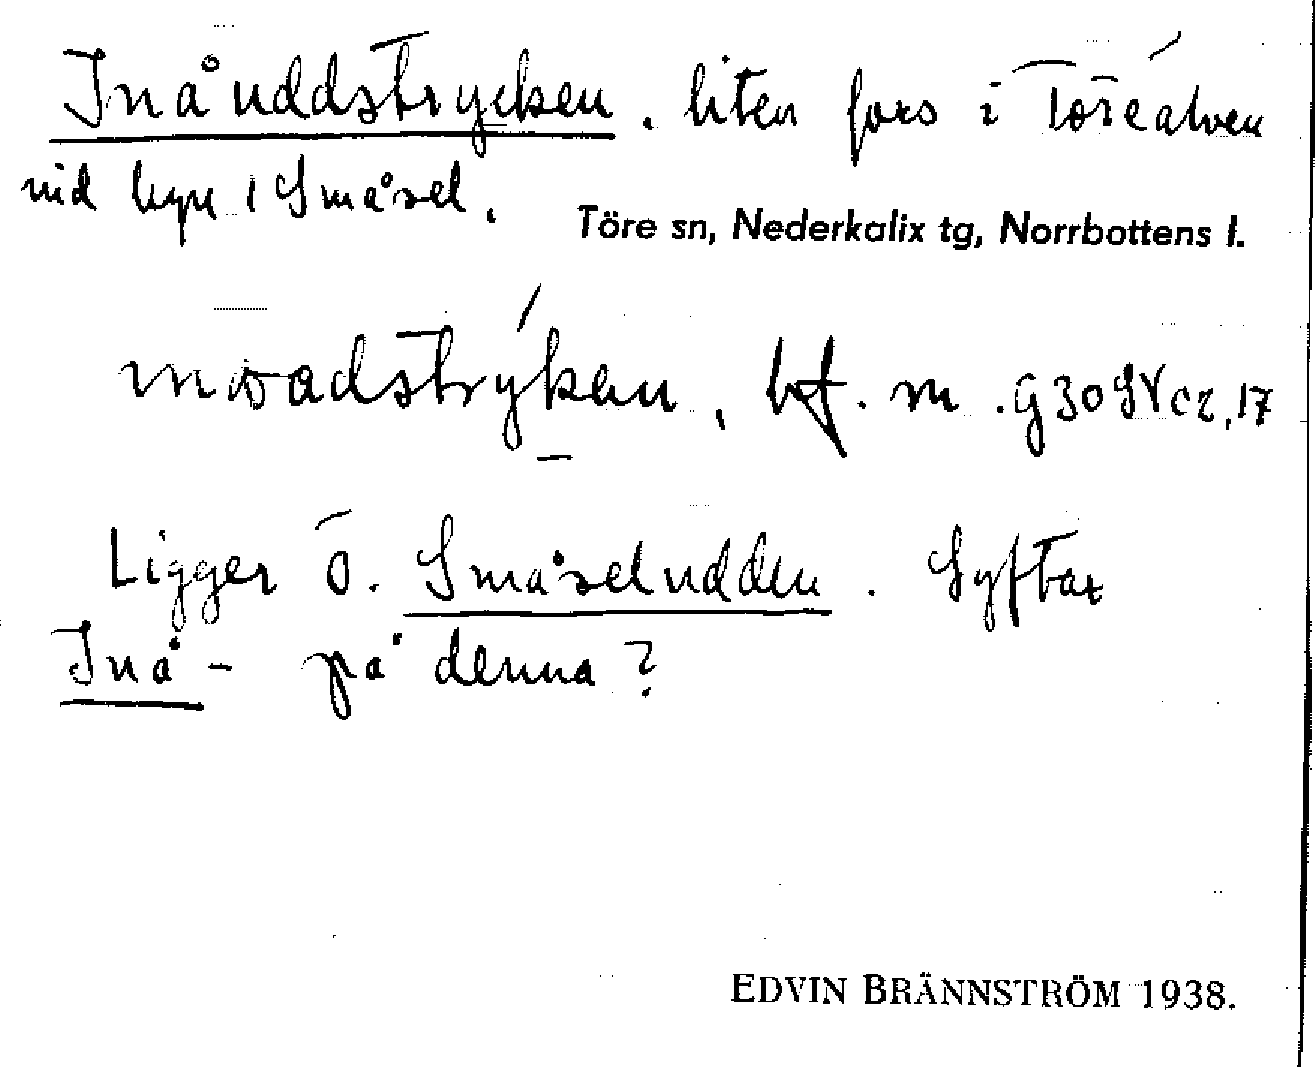 Inåuddstrycken. liten fors i Töreälven
vid byn i Småsel.
Töre sn, Nederkalix tg, Norrbottens l.
bf. m. G30SVc2,17
Ligger Ö. Småseludden. Syftar
Inå- på denna?
EDVIN BRÄNNSTRÖM 1938.